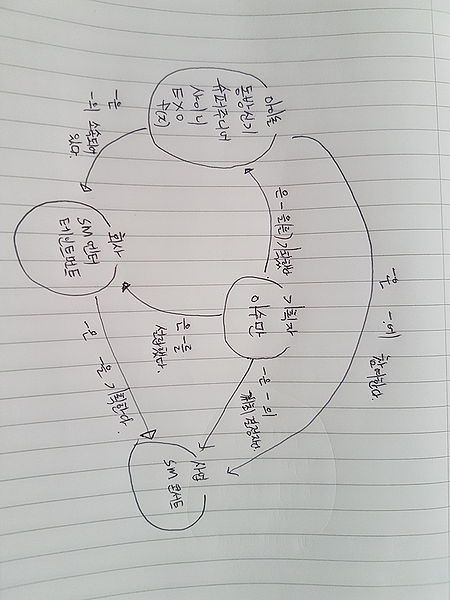 아이돌
동방신기
슈퍼주니어
샤이니
EXO
f(x)
-은
-의 소속되어
있다.
은 - 을(를) 기획했다
-은 -에 참여한다.
회사
SM 엔터
테인트먼트
기획자
이수만
-은 -을
설립했다.
-은 -의
-은 -을 기획한다.
사업
SM 콘서트